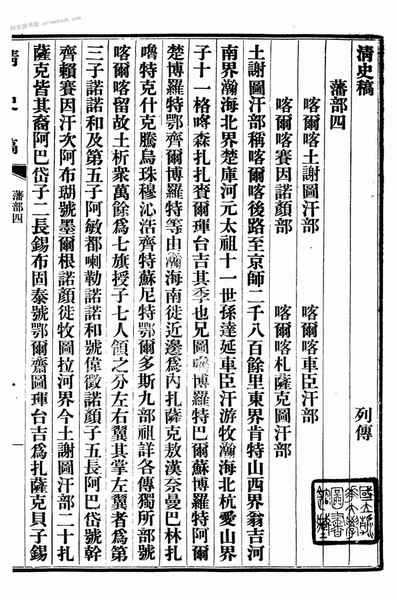 清史稿 列傳
藩部四
喀爾喀土謝圖汗部 喀爾喀車臣汗部
喀爾喀賽因諾顏部 喀爾喀札薩克圖汗部
土謝圖汗部稱喀爾喀後路至京師二千八百餘里東界肯特山西界翁吉河
南界瀚海北界楚庫河元太祖十一世孫達延車臣汗游牧瀚海北杭愛山界
子十一格哷森扎扎賚爾琿台吉其季也兄圖嚕博羅特巴爾蘇博羅特阿爾
楚博羅特鄂齊爾博羅特等由瀚海南徙近邊爲內扎薩克敖漢奈曼巴林扎
嚕特克什克騰烏珠穆沁浩齊特蘇尼特鄂爾多斯九部祖詳各傳獨所部號
喀爾喀留故土析衆萬餘爲七旗授子七人領之分左右翼其掌左翼者爲第
三子諾諾和及第五子阿敏都喇勒諾諾和號偉徵諾顏子五長阿巴岱號斡
齊賴賽因汗次阿布瑚號墨爾根諾顏徙牧圖拉河界今土謝圖汗部二十扎
薩克皆其裔阿巴岱子二長錫布固泰號鄂爾齋圖琿台吉爲扎薩克貝子錫
清史稿 藩部四 一